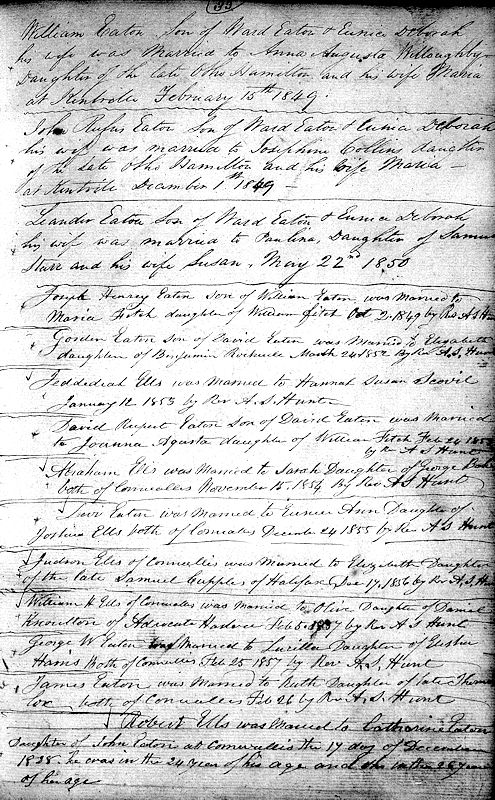 33
William Eaton, Son of Ward Eaton & Eunice Deborah
his wife was Married to Anna Augusta Willoughby
Daughter of the late Otho Hamilton and his wife Maria
at Kentville February 15th 1849.
John Rufus Eaton Son of Ward Eaton & Eunice Deborah
his wife was married to Josephine Collins daughter
of the Late Otho Hamilton and his Wife Maria
at Kintville December 1st 1849
Leander Eaton Son of Ward Eaton & Eunice Deborah
his wife was married to Paulina, Daughter of Samuel
Starr and his wife Susan, May 22nd 1850
Joseph Henery Eaton Son of William Eaton, was Married to
Maria Fitch daughter of William Fitch Oct 2, 1849 by Rev A S Hunt
Gorden Eaton Son of David Eaton was Married to Elizabeth
daughter of Benjamin March 24 1852 By Rev A. S. Hunt
Jeddediah Ells was Married to Hannah Susan Scovil
January 12 1853 by Rev A. S. Hunt
David Rupert Eaton Son of David Eaton was Married
to Joanna Agusta daughter of William Fitch Feb 24 185
by Rev A S Hunt
Abraham Ells was Married to Sarah Daughter of George
both of Cornwallis November 15, 1854 By Rev A S Hunt
Levi Eaton was Married to Eunice Ann Daughter of
Joshua Ells both of Cornwallis December 24 1855 by Rev A S Hunt
Judson Ells of Cornwallis was Married to Elizabeth Daughter
of the late Samuel Cupples of Halifax Dec 17, 1856 by Rev A. S. Hunt
William H Ells of Cornwallis was Married to Olive Daughter of Daniel
Knoulton of Advocate Harbour Feb 5 1857 by Rev A S Hunt
George W Eaton was Married to Lucilla Daughter of Elisha
Harris Both of Cornwallis Feb 25 1857 by Rev A. S. Hunt
James Eaton was Married to Ruth Daughter of late Thomas
Cox both of Cornwallis Feb 26 by Rev A. S. Hunt
Robert Ells was Married to Catharine Eaton
Daughter of John Eaton at Cornwallis the 17 day of December
1828. he was in the 24 year of his age and she in the 26 year
of her age